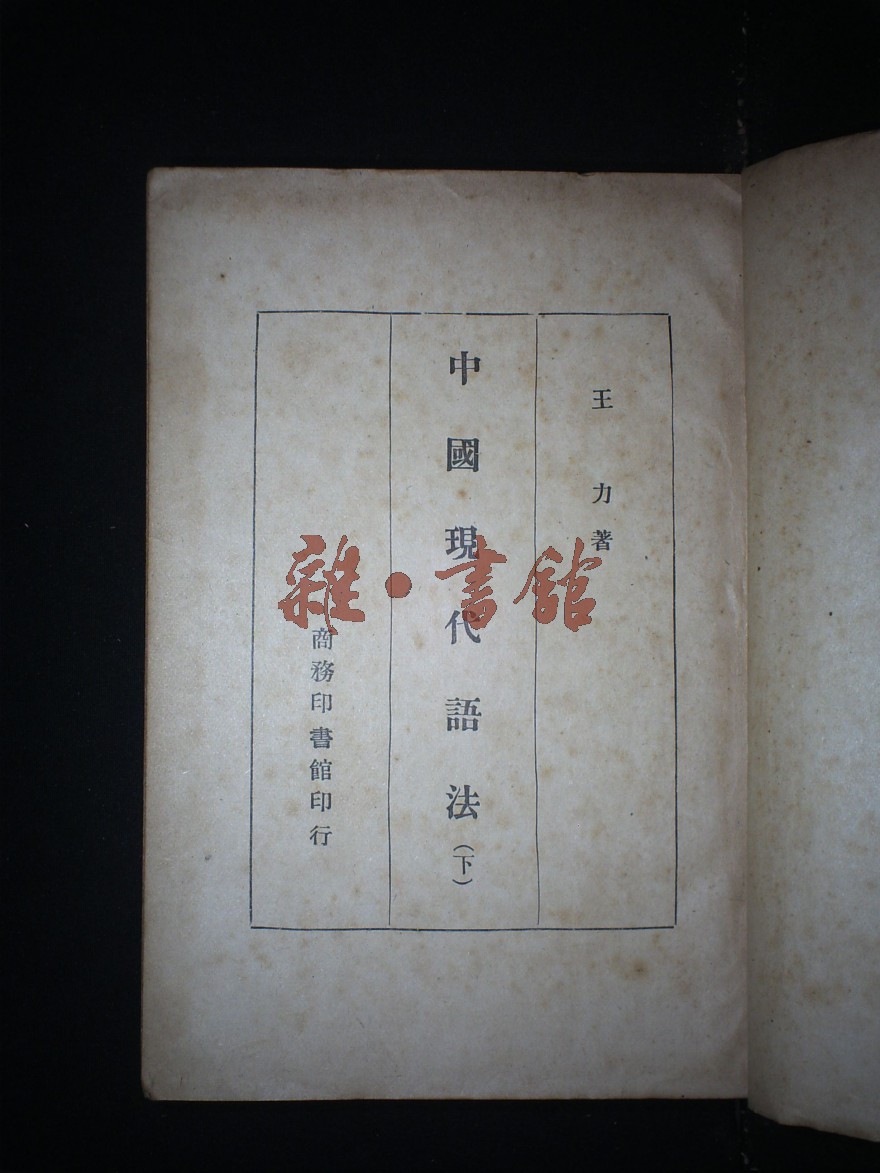 王力著
中國現代語法(下)
商務印書館印行
雜·書館